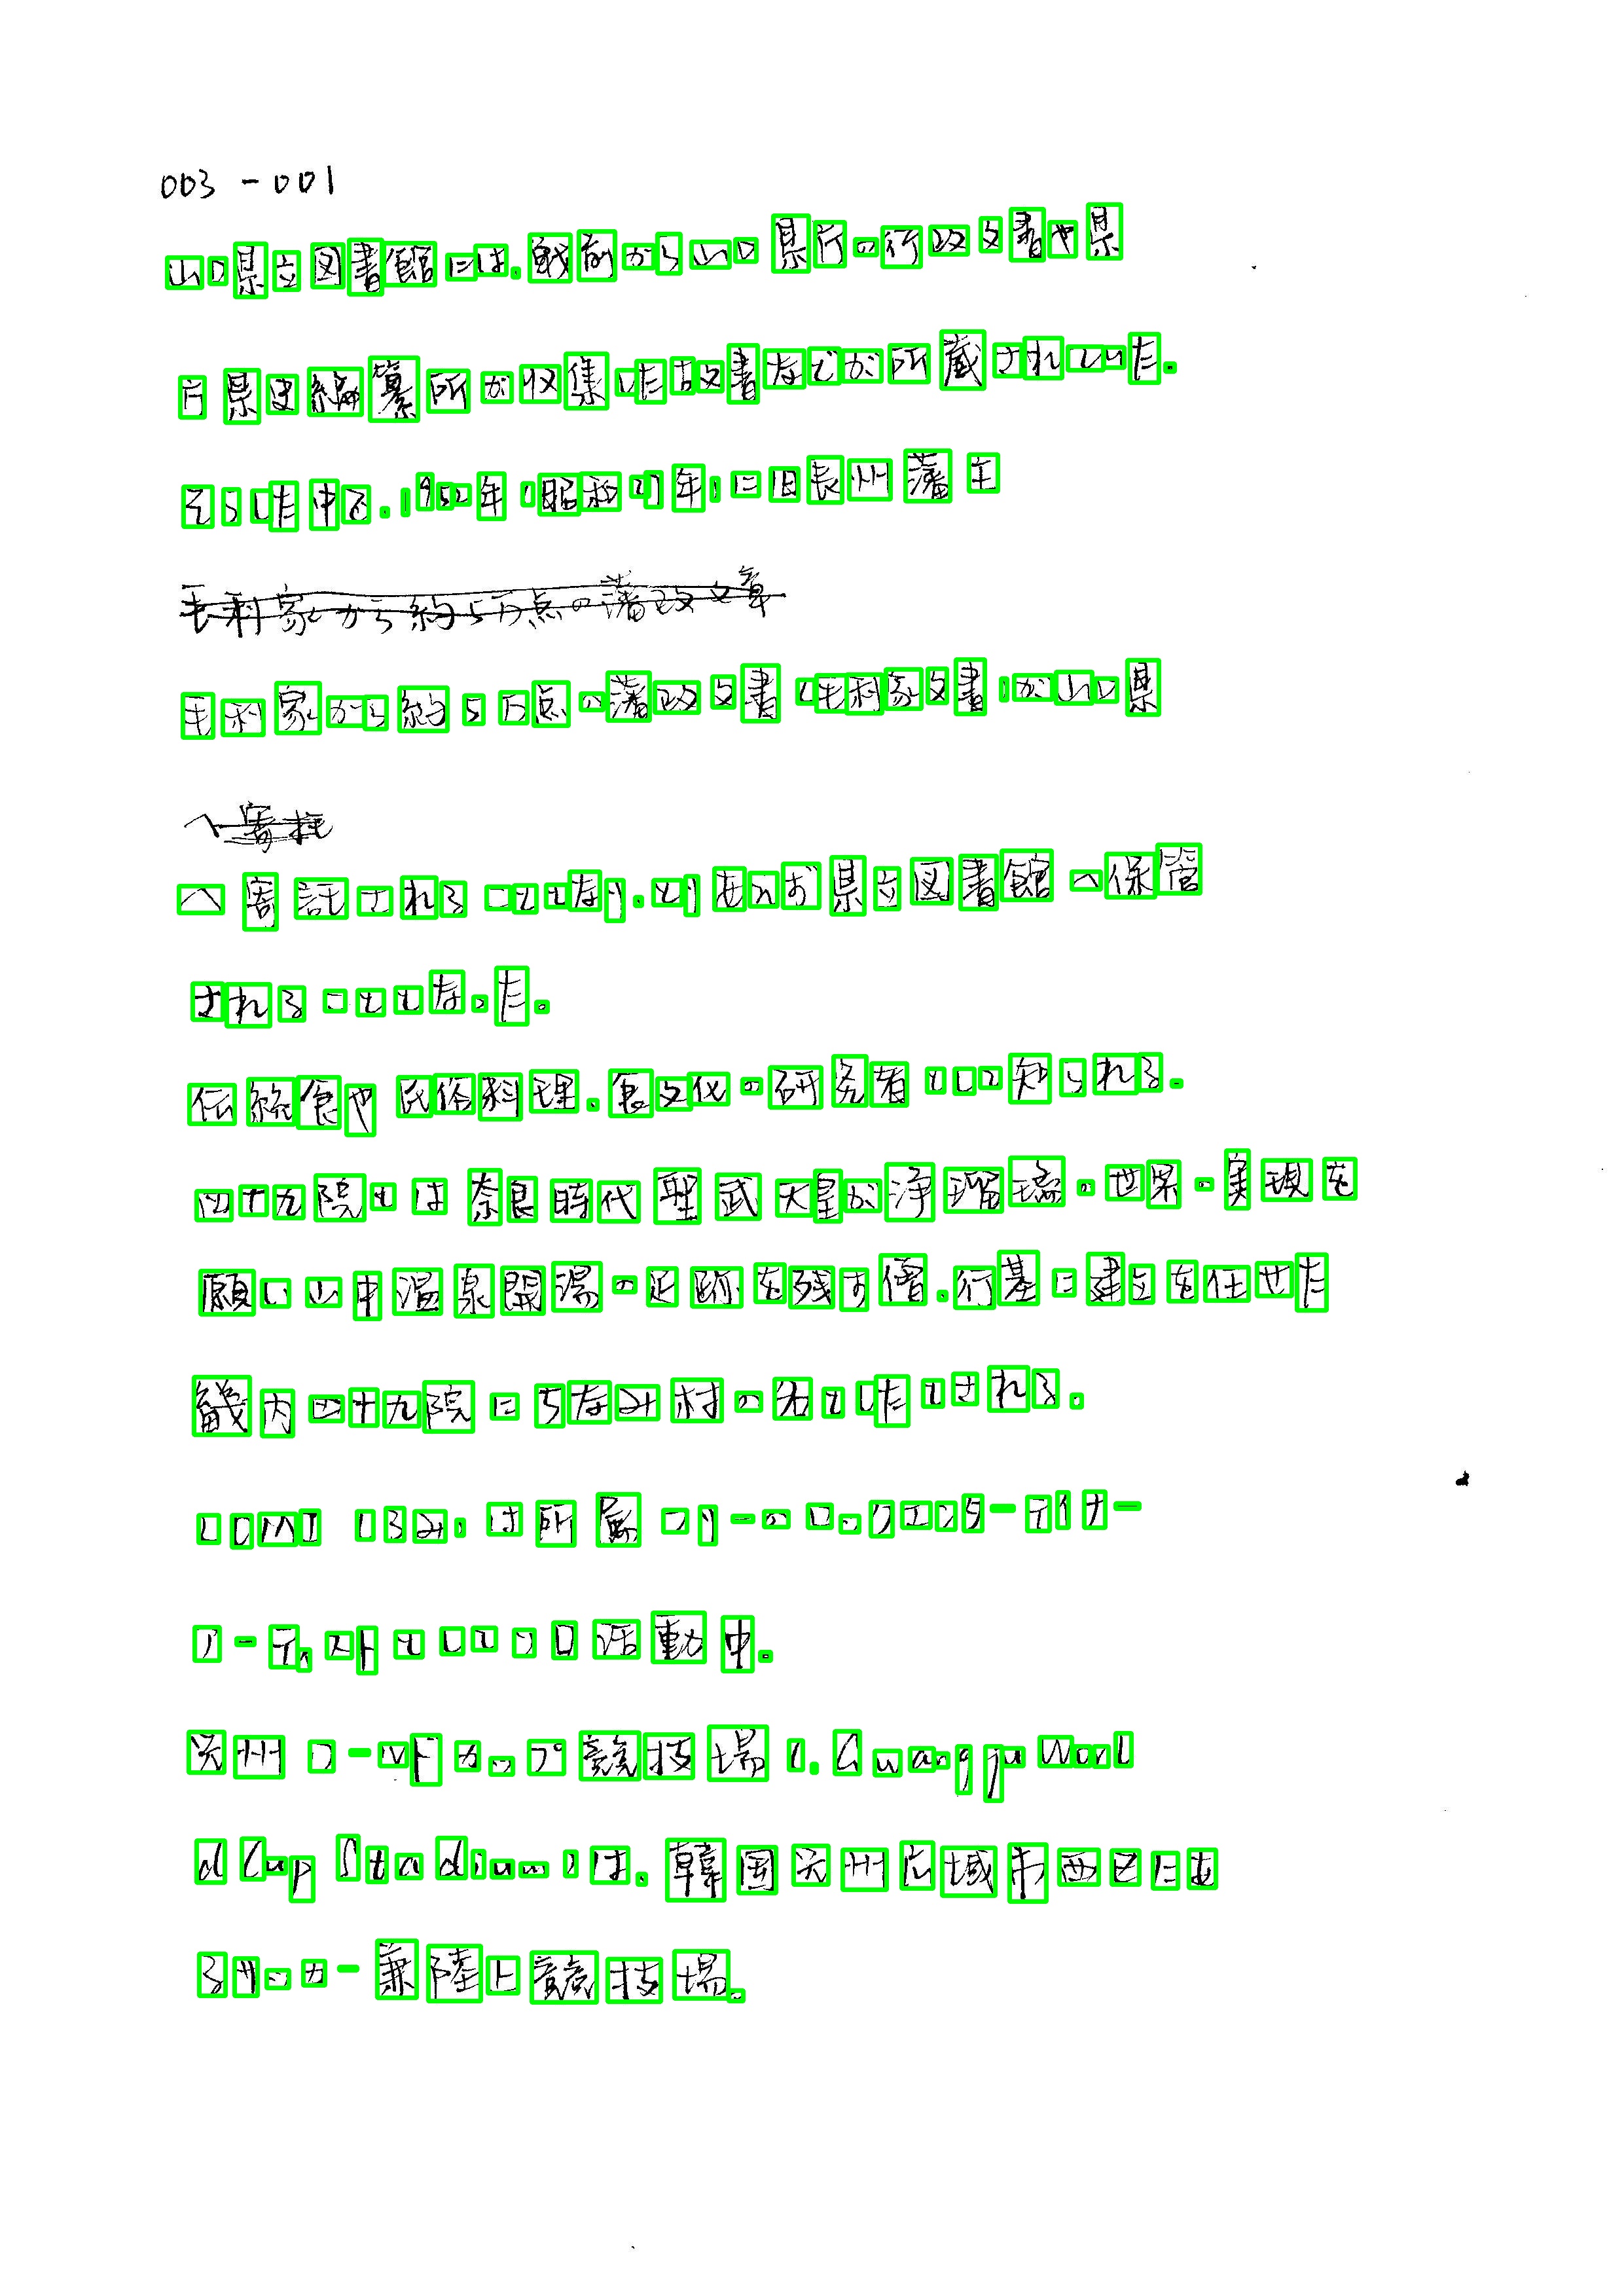 003-001
山口県立図書館には、戦前から山口県庁の行政文書や県
庁県史編纂所が収集した古文書などが所蔵されていた。
そうした中で、1952年(昭和27年)に旧長州藩主
毛利家から約5万点の藩政文章
毛利家から約5万点の藩政文書(毛利家文書)が山口県
へ寄託
へ寄託されることとなり、とりあえず県立図書館へ保管
されることとなった。
伝統食や民俗料理、食文化の研究者として知られる。
四十九院とは奈良時代聖武天皇が浄瑠璃の世界の実現を
願い山中温泉開湯の足跡を残す僧、行基に建立を任せた
畿内四十九院にちなみ村の名としたとされる。
LOMI(ろみ)は所属フリーのロックエンターテイナー
アーティストとしてソロ活動中。
光州ワールドカップ競技場(、Guangju Worl
d Cup Stadium)は、韓国光州広域市西区にあ
るサッカー兼陸上競技場。